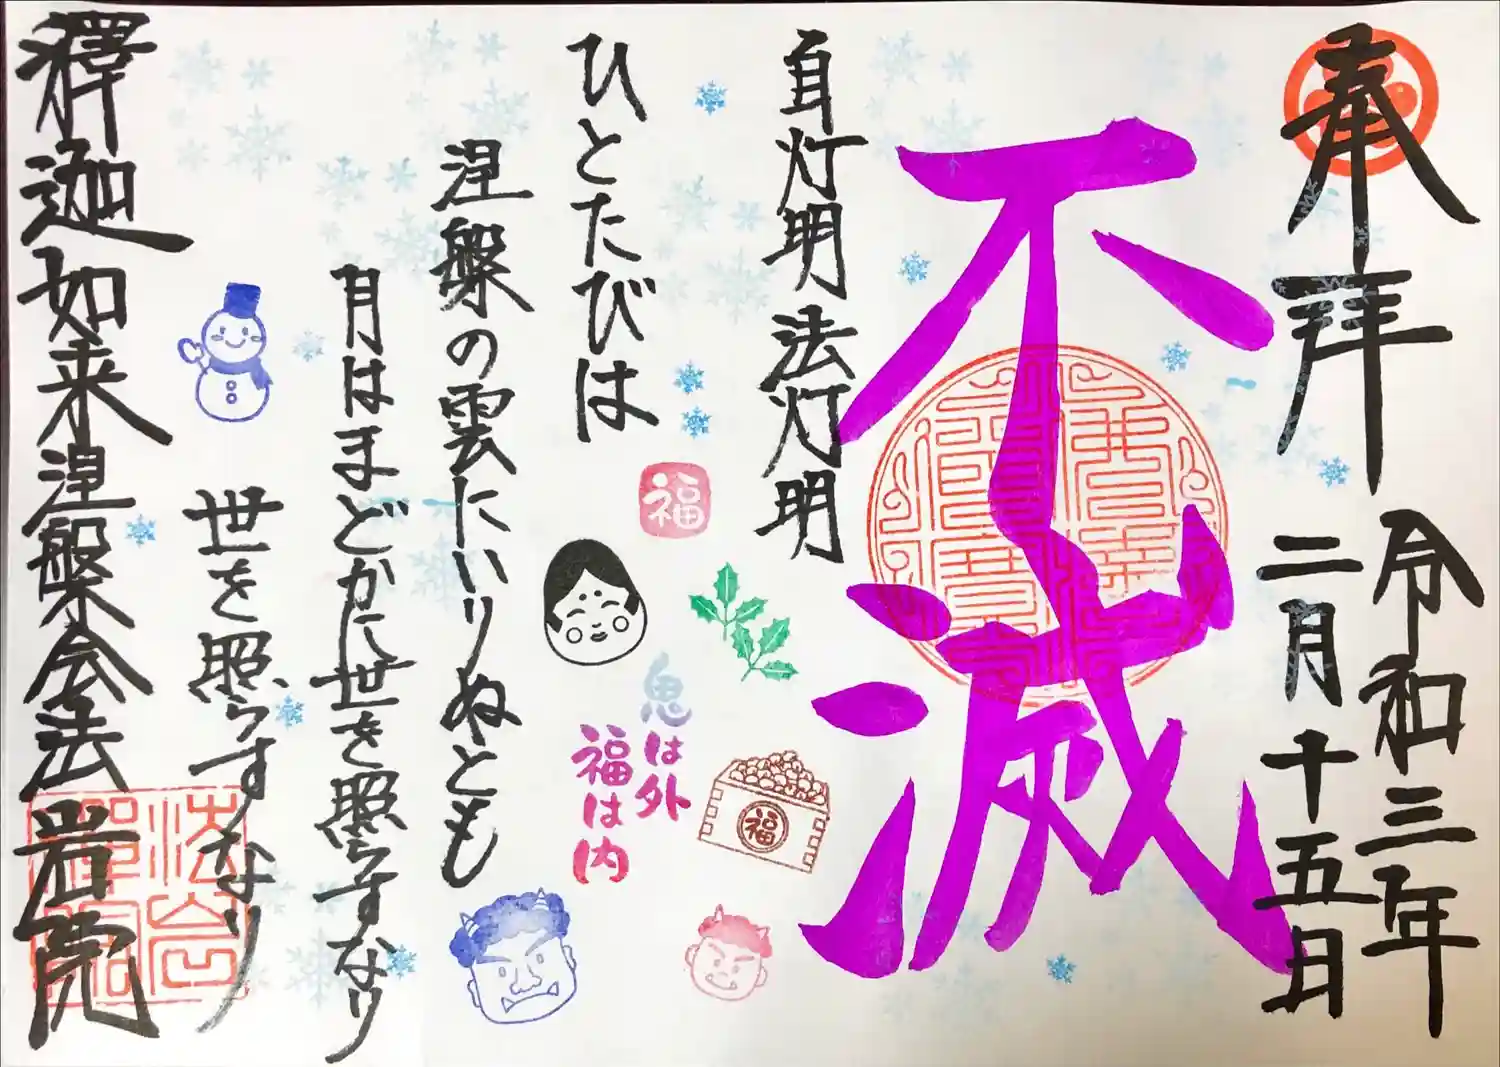 奉拝
令和三年
二月十五日
不滅
自灯明法灯明
ひとたびは
涅槃の雲にいりぬとも
月はまどかに世を照らすなり
世を照らすなり
福
鬼は外
福は内
福
釋迦如来涅槃会法岩院